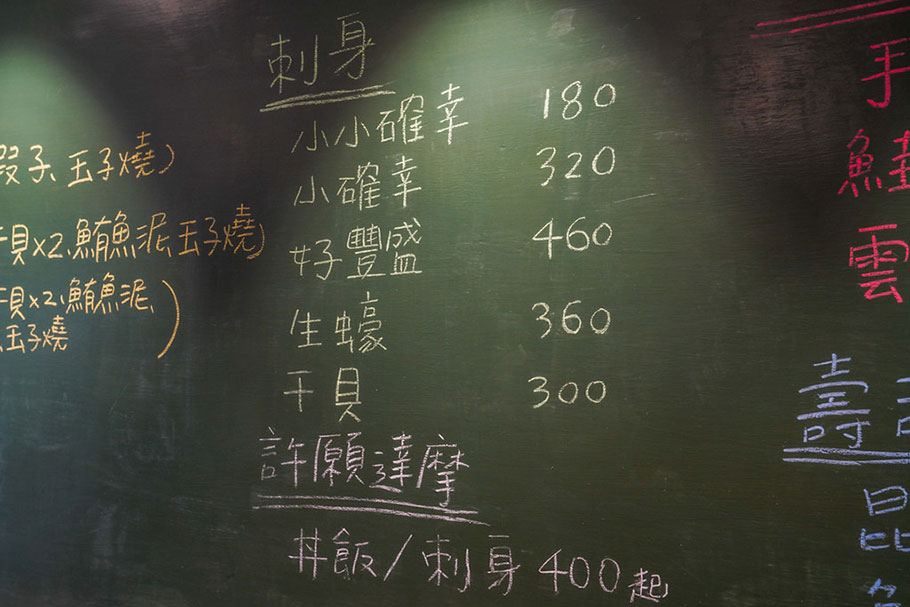 子、玉子燒)
貝x2、鮪魚泥、玉子燒)
干貝x2、鮪魚泥、
玉子燒)
刺身
小小確幸 180
小確幸 320
好豐盛 460
生蠔 360
干貝 300
許願達摩
丼飯/刺身 400起
手
鮭
雲
壽司
昆